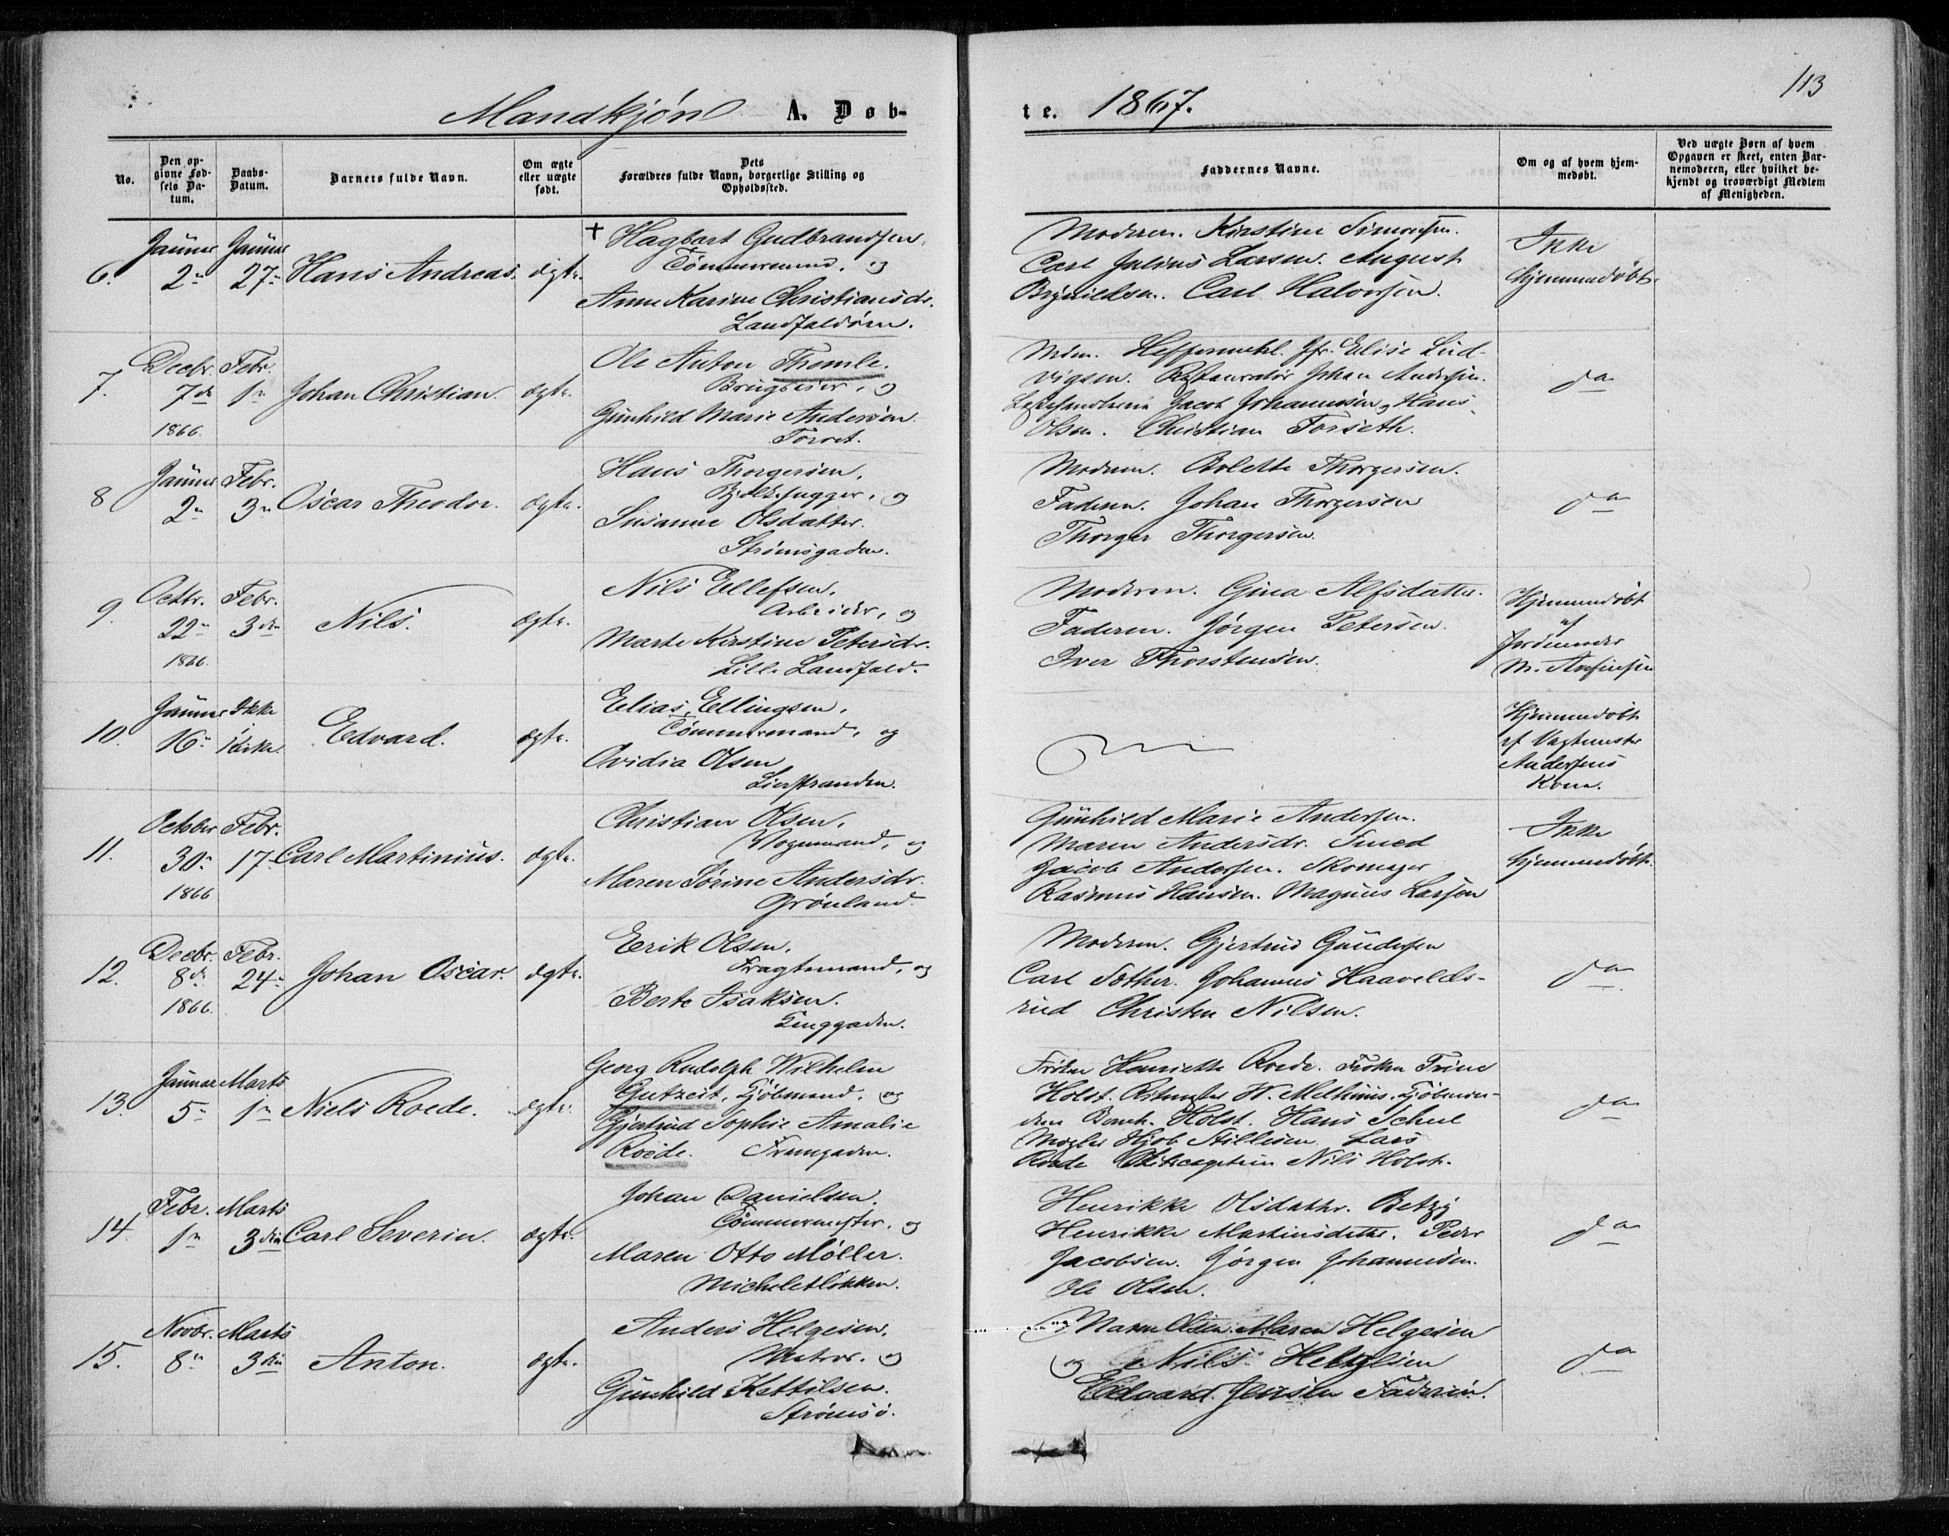 113
Mandkjøn A. Døb-
te. 1867.
No.
Den op-
givne Fød-
sels Da-
tum.
Daabs-
Datum.
Barnets fulde Navn.
Om ægte
eller uægte
født.
Dets
Forældres fulde Navn, borgerlige Stilling og
Opholdssted.
Faddernes Navne.
Om og af hvem hjem-
medøbt.
Ved uægte Børn af hvem
Opgaven er skeet, enten Bar-
nemoderen, eller hvilket be-
kjendt og troværdigt Medlem
af Menigheden.
6. Januar 2n Januar 27n Hans Andreas. ægte.
+ Hagbart Gudbrandsen,
Tømmermand, og
Anne Karine Christiansdr.
Landfaldøen.
Moderen. Kirstine Simonsen.
Carl Julius Larsen. August
Brynildsen. Carl Halvorsen.
Ikke
hjemmedøbt.
7. Decbr. 7de 1866. Febr. 1n Johan Christian. ægte.
Ole Anton Thomle.
Brugseier, og
Gunhild Marie Andersen.
Torvet.
Mdm. Heffermehl. Jfr. Elise Lud-
vigsen. Restauratør Johan Andersen.
Jacob Johannesen, Hans
Olsen. Christian Forseth.
do
8 Januar 2n Febr. 3n Oscar Theodor. ægte.
Hans Thorgersen,
og
Susanne Olsdatter.
Strømsgaden.
Moderen. Bolette Thorgersen.
Faderen. Johan Thorgersen
Thorger Thorgersen.
do
9. Octbr. 22n 1866. Febr. 3die Nils. ægte.
Nils Ellefsen,
Arbeider, og
Marte Kirstine Petersdr.
Lille Landfald.
Moderen. Gina Alfsdatter.
Faderen. Jørgen Petersen.
Iver Thorstensen.
Hjemmedøbt
af
Jordemoder
M.
10. Januar 16n Ikke i Kirke. Edvard. ægte.
Elias Ellingsen,
Tømmermand, og
Ovidia Olsen
Lierstranden.
Hjemmedøbt
af Vagtmester
Andersens
Kone.
11. October 30n 1866 Febr. 17. Carl Martinius. ægte.
Christian Olsen,
Vognmand, og
Maren Sørine Andersdr.
Grønland.
Gunhild Marie Andersen.
Maren Andersdr. Smed
Jacob Andersen. Skomager
Rasmus Hansen. Magnus Larsen
Ikke
hjemmedøbt.
12. Decbr. 8de 1866. Febr. 24n Johan Oscar. ægte.
Eerik Olsen,
Fragtemand, og
Berte Isaksen.
Tinggaden.
Moderen. Gjertrud Gundersen
Carl Sæther. Johannes Haavelds-
rud Christen Nilsen.
do
13. Januar 5n Marts 1n Niels Roede. ægte.
Georg Rudolph Wilhelm
Gutzeit, Kjøbmand, og
Gjertrud Sophie Amalie
Roede. Tramgaden.
Frøken Henriette Roede. Frøken Trine
Holst. W. Melhuus. Kjøbmæn-
dene Bernh. Holst. Hans Schee
Mægler Hjob Stillesen. Lars
Roede Nils Holst.
do
14. Febr. 1n Marts 3die Carl Severin. ægte.
Johan Danielsen,
Tømmermester, og
Maren Otto Møller.
Micheletløkken.
Henrikke Olsdatter. Betzy
Henrikke Martinsdatter. Peder
Jacobsen. Jørgen Johannesen.
Ole Olsen.
do
15. Novbr. 8n Marts 3die Anton. ægte.
Anders Helgesen,
Matros. og
Gunhild Kettilsen.
Strømsø.
Maren Olsen. Maren Helgesen
og Nils Helgesen
Edvard Jensen Faderen.
do